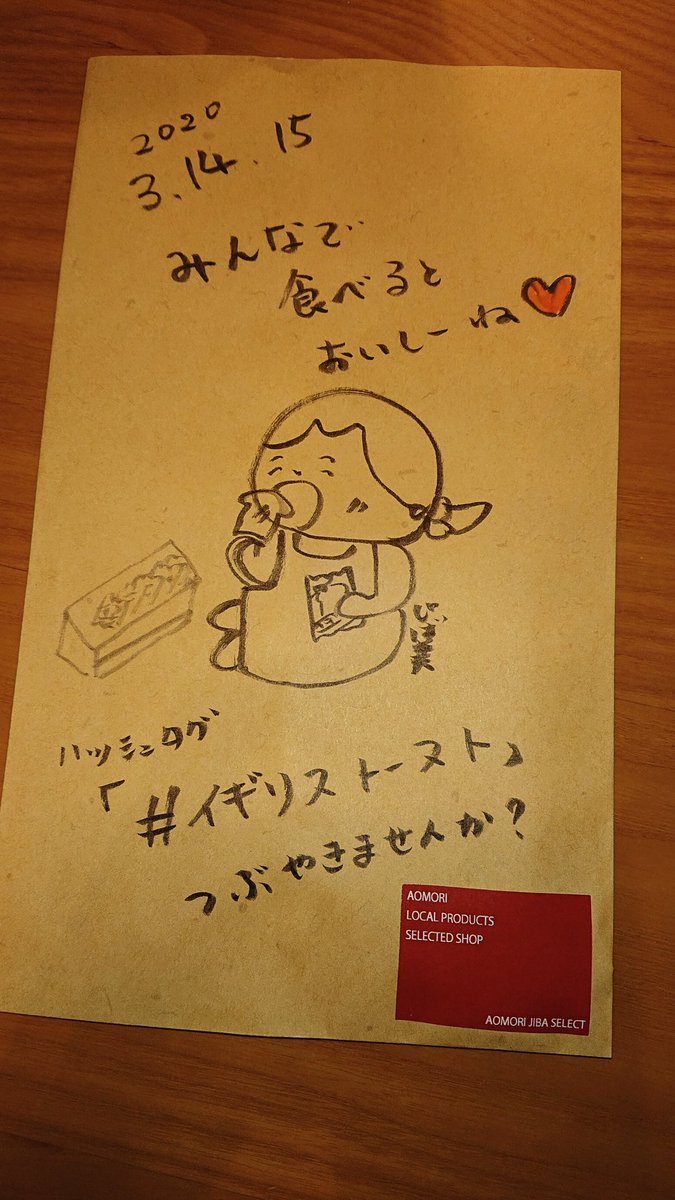 2020
3.14.15
みんなで
食べると
おいしーね
ハッシュタグ
「#イギリストースト」
つぶやきませんか?
AOMORI
LOCAL PRODUCTS
SELECTED SHOP
AOMORI JIBA SELECT